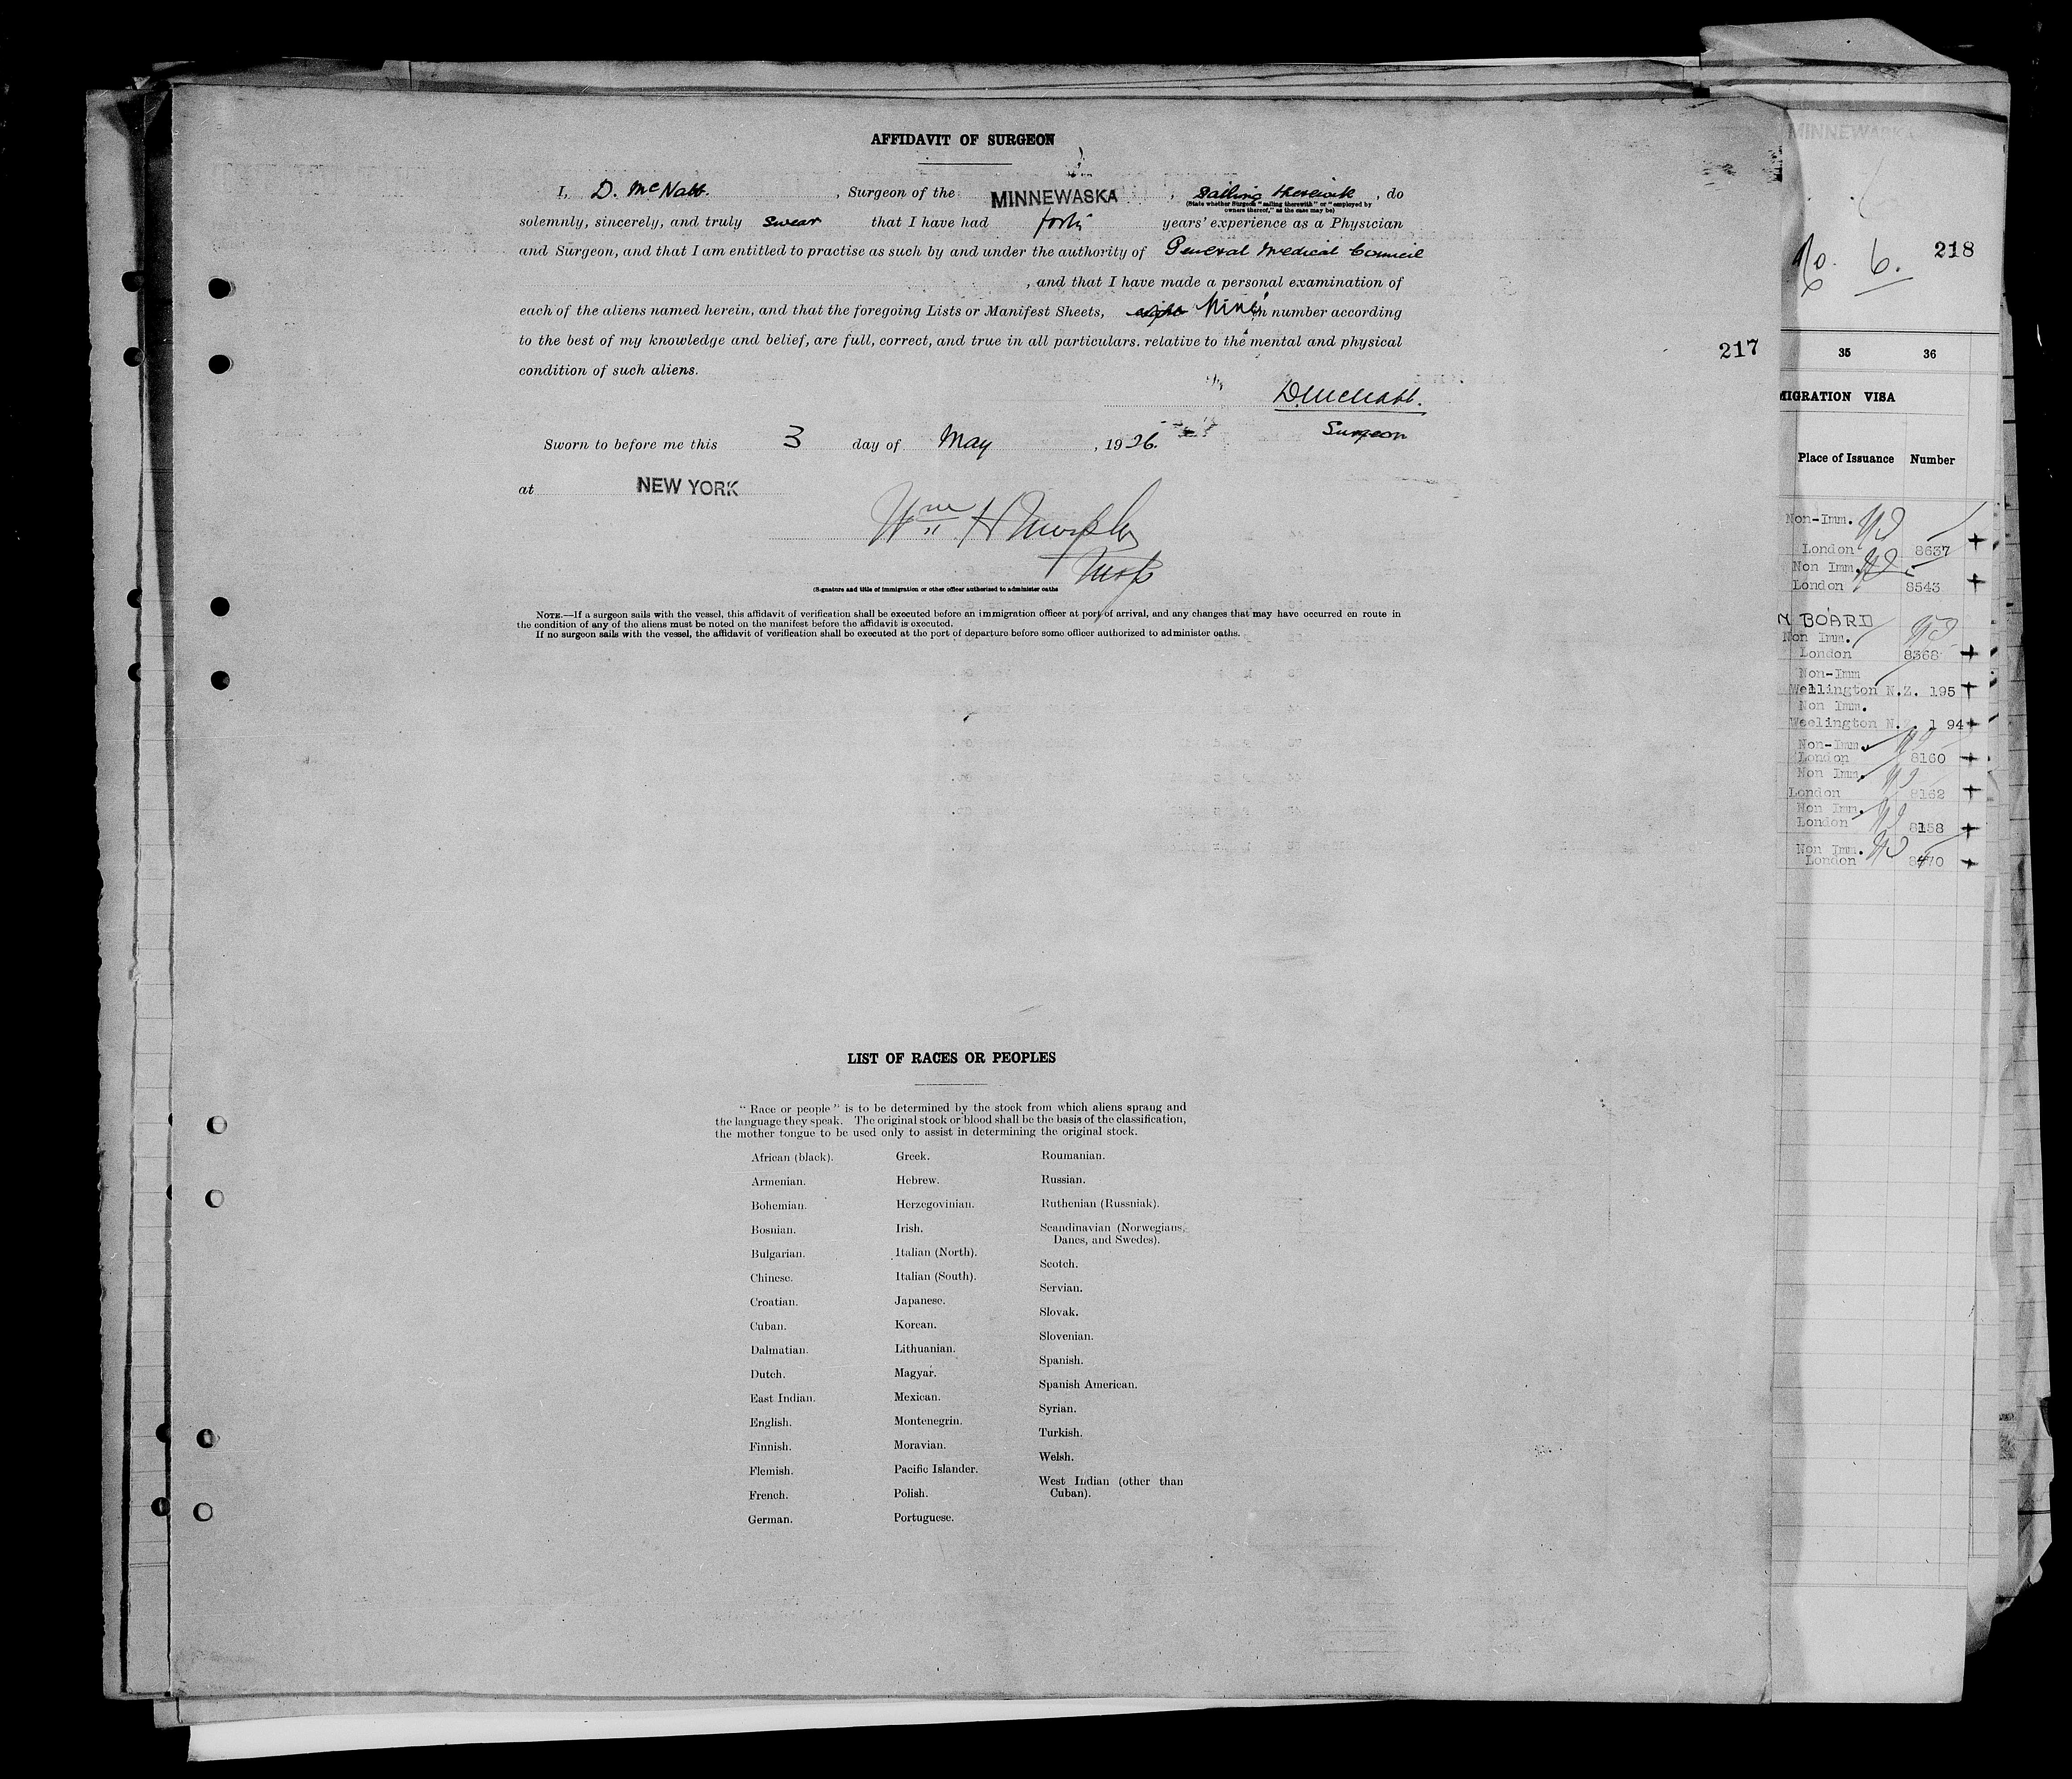 AFFIDAVIT OF SURGEON
I, D. McNabb. , Surgeon of the MINNEWASKA , Sailing therewith , do
(State whether Surgeon "sailing therewith" or "employed by
owners thereof," as the case may be)
solemnly, sincerely, and truly swear that I have had forty years' experience as a Physician
and Surgeon, and that I am entitled to practise as such by and under the authority of General Medical Council
, and that I have made a personal examination of
each of the aliens named herein, and that the foregoing Lists or Manifest Sheets, eight Nine in number according
to the best of my knowledge and belief, are full, correct, and true in all particulars. relative to the mental and physical
condition of such aliens.
D. McNabb.
Surgeon
Sworn to before me this 3 day of May , 1926.
at NEW YORK
Wm H Murphy
(Signature and title of immigration or other officer authorized to administer oaths
NOTE.—If a surgeon sails with the vessel, this affidavit of verification shall be executed before an immigration officer at port of arrival, and any changes that may have occurred en route in
the condition of any of the aliens must be noted on the manifest before the affidavit is executed.
If no surgeon sails with the vessel, the affidavit of verification shall be executed at the port of departure before some officer authorized to administer oaths.
217
LIST OF RACES OR PEOPLES
"Race or people" is to be determined by the stock from which aliens sprang and
the language they speak. The original stock or blood shall be the basis of the classification,
the mother tongue to be used only to assist in determining the original stock.
African (black).
Armenian.
Bohemian.
Bosnian.
Bulgarian.
Chinese.
Croatian.
Cuban.
Dalmatian.
Dutch.
East Indian.
English.
Finnish.
Flemish.
French.
German.
Greek.
Hebrew.
Herzegovinian.
Irish.
Italian (North).
Italian (South).
Japanese.
Korean.
Lithuanian.
Magyar.
Mexican.
Montenegrin.
Moravian.
Pacific Islander.
Polish.
Portuguese.
Roumanian.
Russian.
Ruthenian (Russniak).
Scandinavian (Norwegians,
Danes, and Swedes).
Scotch.
Servian.
Slovak.
Slovenian.
Spanish.
Spanish American.
Syrian.
Turkish.
Welsh.
West Indian (other than
Cuban).
MINNEWASKA
No. 6. 218
35 36
MIGRATION VISA
Place of Issuance Number
Non-Imm.
London 8637
Non Imm.
London 8543
N BOARD
Non Imm.
London 8368
Non-Imm
Wellington N.Z. 195
Non Imm.
Weelington N.Z. 1 94
Non-Imm.
London 8160
Non Imm.
London 8162
Non Imm.
London 8158
Non Imm.
London 8470